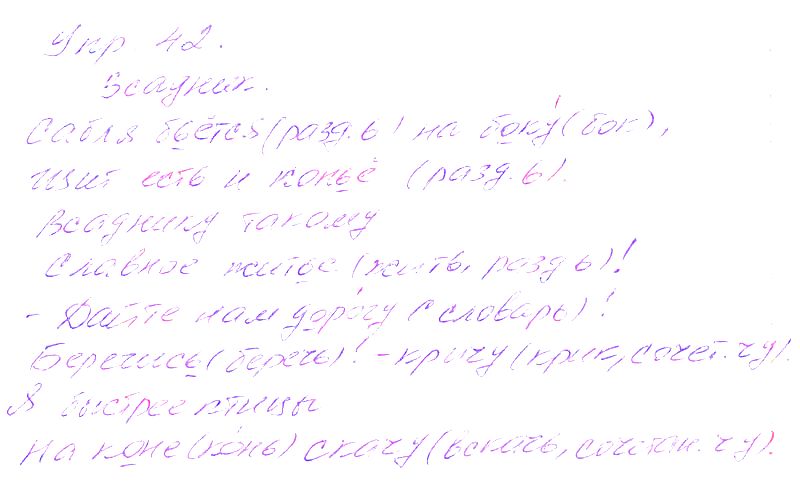 Упр. 42.
Всадник.
Сабля бьётся (разд. ь) на боку́ (бок),
Щит есть и копьё (разд. ь).
Всаднику такому
Славное житьё (жить, разд ь)!
- Дайте нам доро́гу (словарь)!
Берегись (беречь)! - кричу (крик, сочет. чу).
Я быстрее птицы
На коне (ко́нь) скачу (вскачь, сочетан. чу).